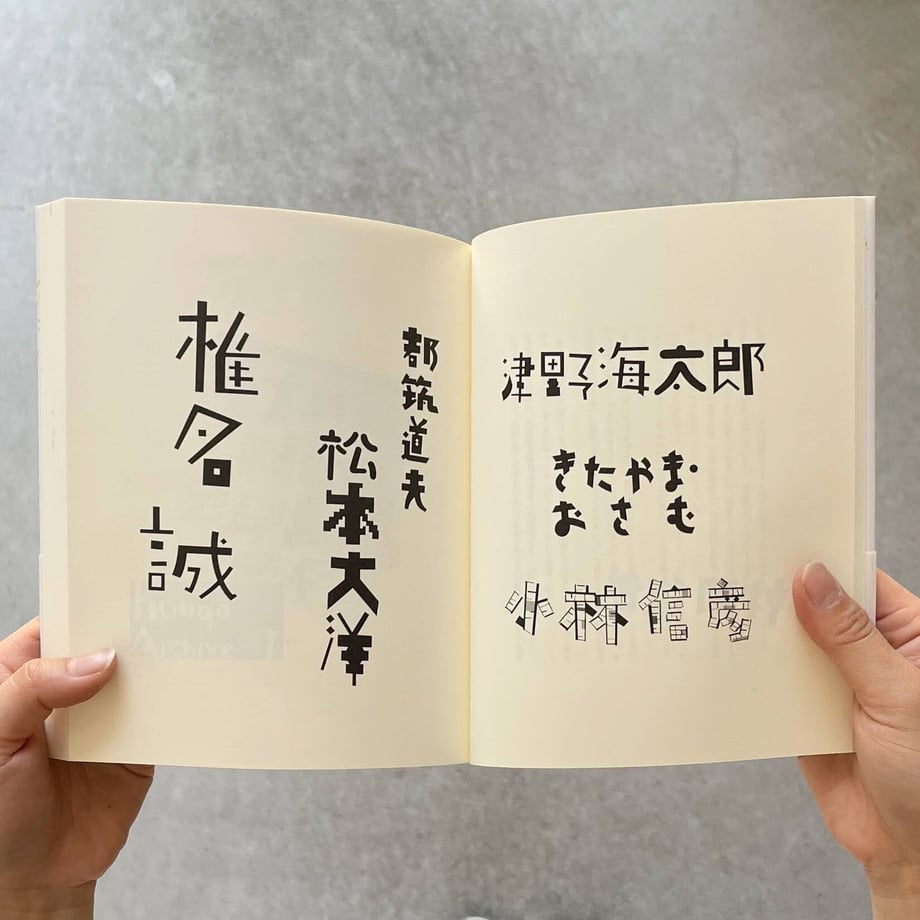 津野海太郎
きたやま・
おさむ
小林信彦
都筑道夫
松本大洋
椎名誠